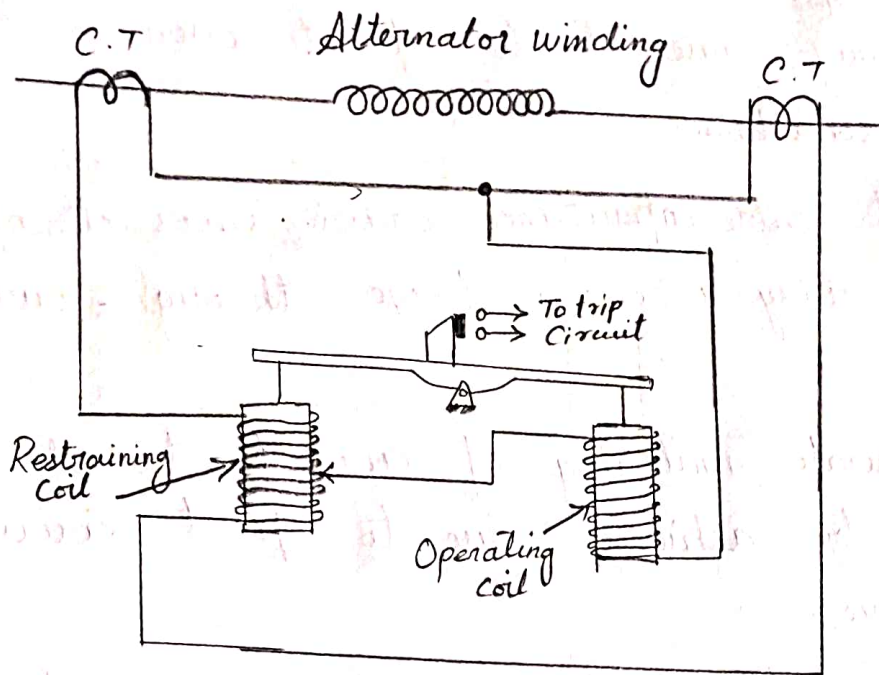 Alternator winding
C.T
C.T
To trip
Circuit
Restraining
Coil
Operating
Coil